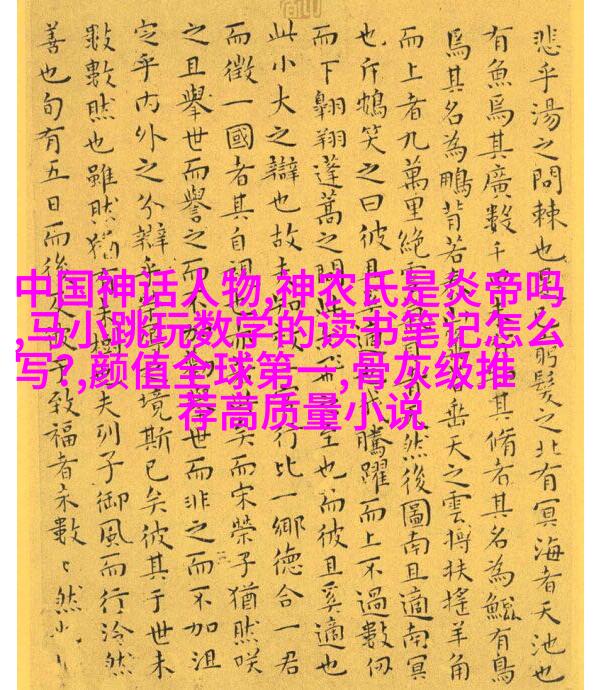 悲乎湯之問棘也是 窮髮之北有冥海者天池也
有魚焉其廣數千 其脩者其名為鯤有鳥
焉其名為鵬背若泰 垂天之雲摶扶搖羊角
而上者九萬里絕雲 然後圖南且適南冥
也斥鴳笑之曰彼且 騰躍而上不過數仞
而下翱翔蓬蒿之間此 至也而彼且奚適也
此小大之辯也故夫知 行比一鄉德合一君
而徵一國者其自視也 矣而宋榮子猶然咲
之且舉世而譽之而不加 而非之而不加沮
定乎內外之分辯乎 境斯已矣彼其于世未
數數然也雖然猶有未樹 夫列子御風而行泠然
善也旬有五日而後 致福者未數々然
中国神话人物,神农氏是炎帝吗
,马小跳玩数学的读书笔记怎么
写?,颜值全球第一,骨灰级推
荐高质量小说